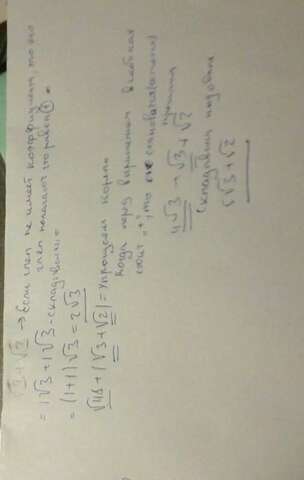 √3 + √3 → Если член не имеет коэффициента, то его
член полагают, что равен 1.
= 1√3 + 1√3 - складываем =
= (1+1)√3 = 2√3
√48 + (√3 + √2) = Упрощаем корень
Когда перед выражением в скобках
стоит "+", то
4√3 + √3 + √2
складываем подобные
5√3 + √2